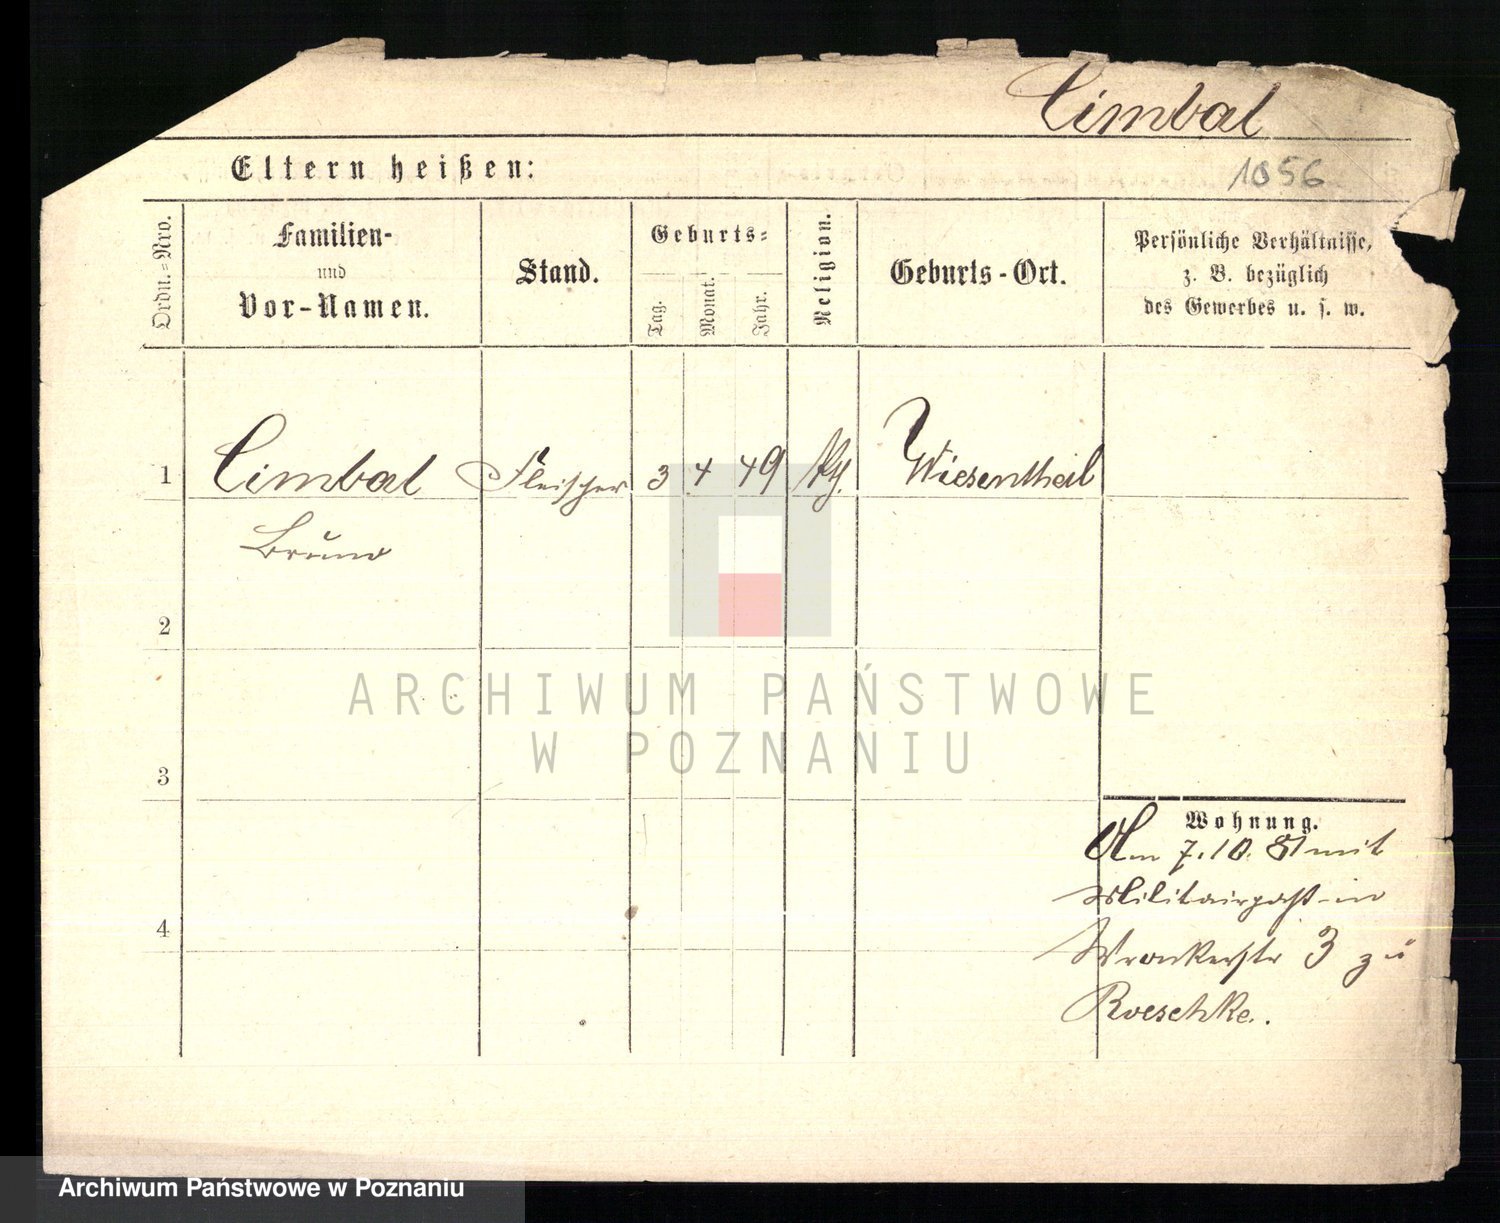 Cimbal
1056
Eltern heißen:
Ordn.=Nro.
Familien-
und
Vor-Namen.
Stand.
Geburts=
Tag.
Monat.
Jahr.
Religion.
Geburts-Ort.
Persönliche Verhältnisse,
z. B. bezüglich
des Gewerbes u. s. w.
1 Cimbal Fleischer 3 4 49 Wiesentheil
Bruno
2
3
4
ARCHIWUM PAŃSTWOWE
W POZNANIU
Wohnung.
Am 7.10.81 mit
Militairpaß in
Wronkerstr 3 zu
Roeschke.
Archiwum Państwowe w Poznaniu